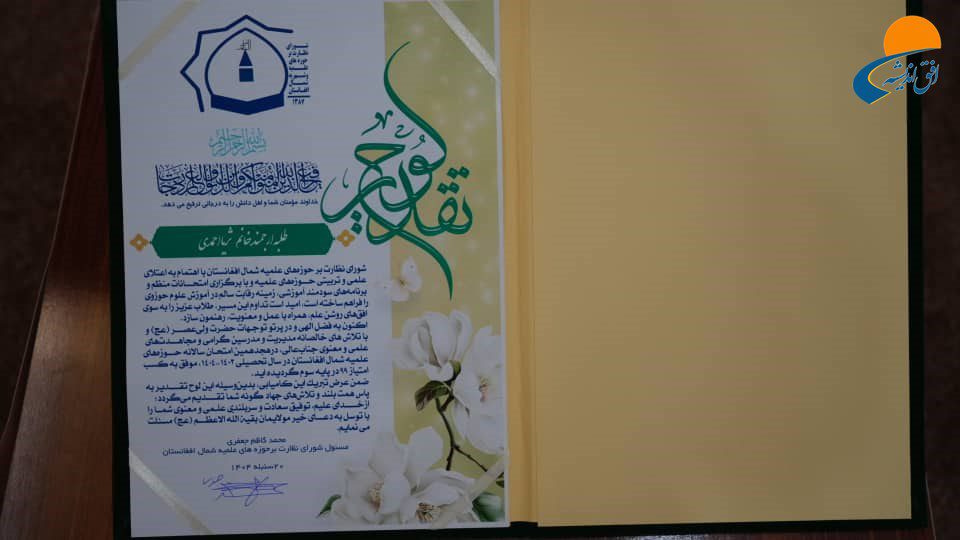 افق اندیشه
شورای
نظارت بر
حوزه های
علمیه
شمال
افغانستان
۱۳۸۷
بسم الله الرحمن الرحیم
یرفع الله الذین آمنوا منکم والذین اوتوا العلم درجات
خداوند مؤمنان شما و اهل دانش را به درجاتی ترفیع می دهد.
لوح تقدیر
طلبه ارجمند خانم ثریا احمدی
شورای نظارت بر حوزه‌های علمیه شمال افغانستان با اهتمام به اعتلای
علمی و تربیتی حوزه‌های علمیه و با برگزاری امتحانات منظم و
برنامه‌های سودمند آموزشی، زمینه رقابت سالم در آموزش علوم حوزوی
را فراهم ساخته است، امید است تداوم این مسیر، طلاب عزیز را به سوی
افق‌های روشن علم، همراه با عمل و معنویت، رهنمون سازد.
اکنون به فضل الهی و در پرتو توجهات حضرت ولی‌عصر (عج) و
با تلاش های خالصانه مدیریت و مدرسین گرامی و مجاهدت‌های
علمی و معنوی جناب‌عالی، در هجدهمین امتحان سالانه حوزه‌های
علمیه شمال افغانستان در سال تحصیلی ۱۴۰۳-۱۴۰۴، موفق به کسب
امتیاز ۹۹ در پایه سوم گردیده اید.
ضمن عرض تبریک این کامیابی، بدین‌وسیله این لوح تقدیر به
پاس همت بلند و تلاش‌های جهاد گونه شما تقدیم می‌گردد؛
از خدای علیم، توفیق سعادت و سربلندی علمی و معنوی شما را
با توسل به دعای خیر مولایمان بقیة الله الاعظم (عج) مسئلت
می نمایم.
محمد کاظم جعفری
مسئول شورای نظارت برحوزه های علمیه شمال افغانستان
۲۰ سنبله ۱۴۰۴